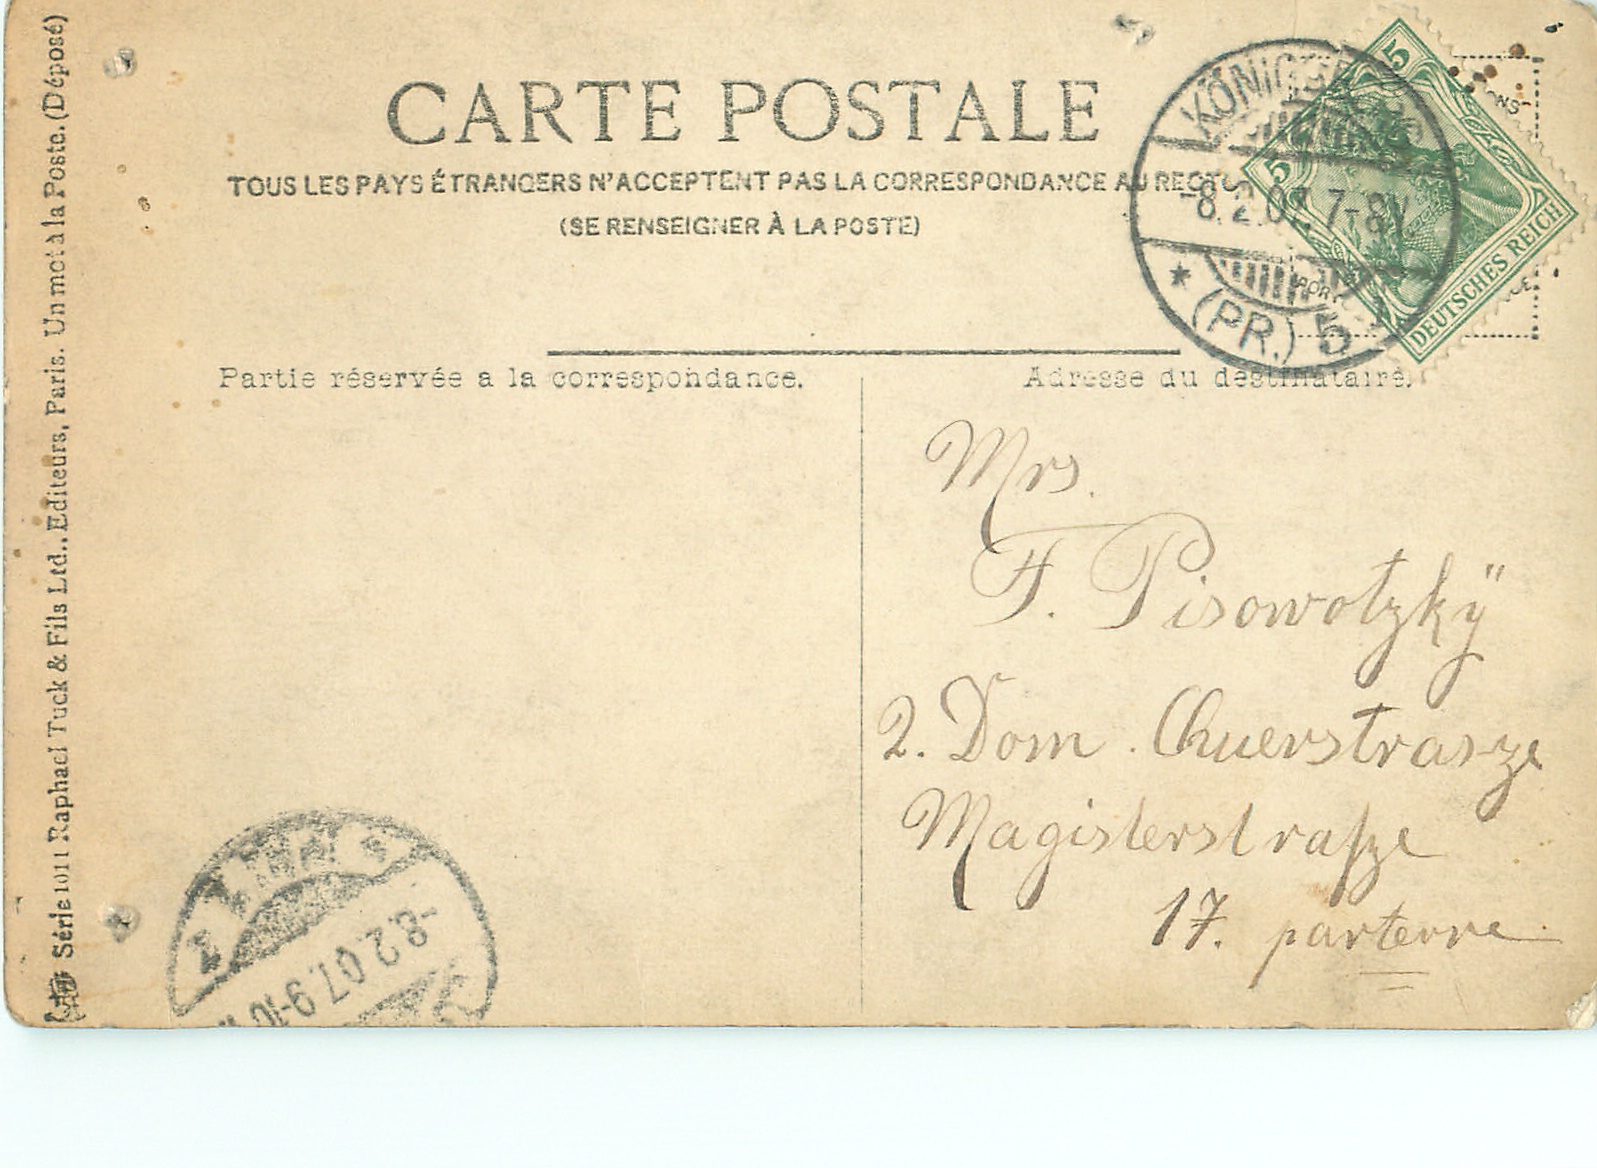 CARTE POSTALE
TOUS LES PAYS ÉTRANGERS N'ACCEPTENT PAS LA CORRESPONDANCE AU RECTO
(SE RENSEIGNER À LA POSTE)
Partie réservée a la correspondance.
Adresse du destinataire.
Série 1011 Raphael Tuck & Fils Ltd., Editeurs, Paris. Un mot à la Poste. (Déposé)
KÖNIGSBERG
-8.2.07. 7-8V.
(PR.) 5
5
5
DEUTSCHES REICH
Mrs.
F. Pisowotzkÿ
2. Dom. Querstrasze
Magisterstraſze
17. parterre
-8.2.07. 9-10